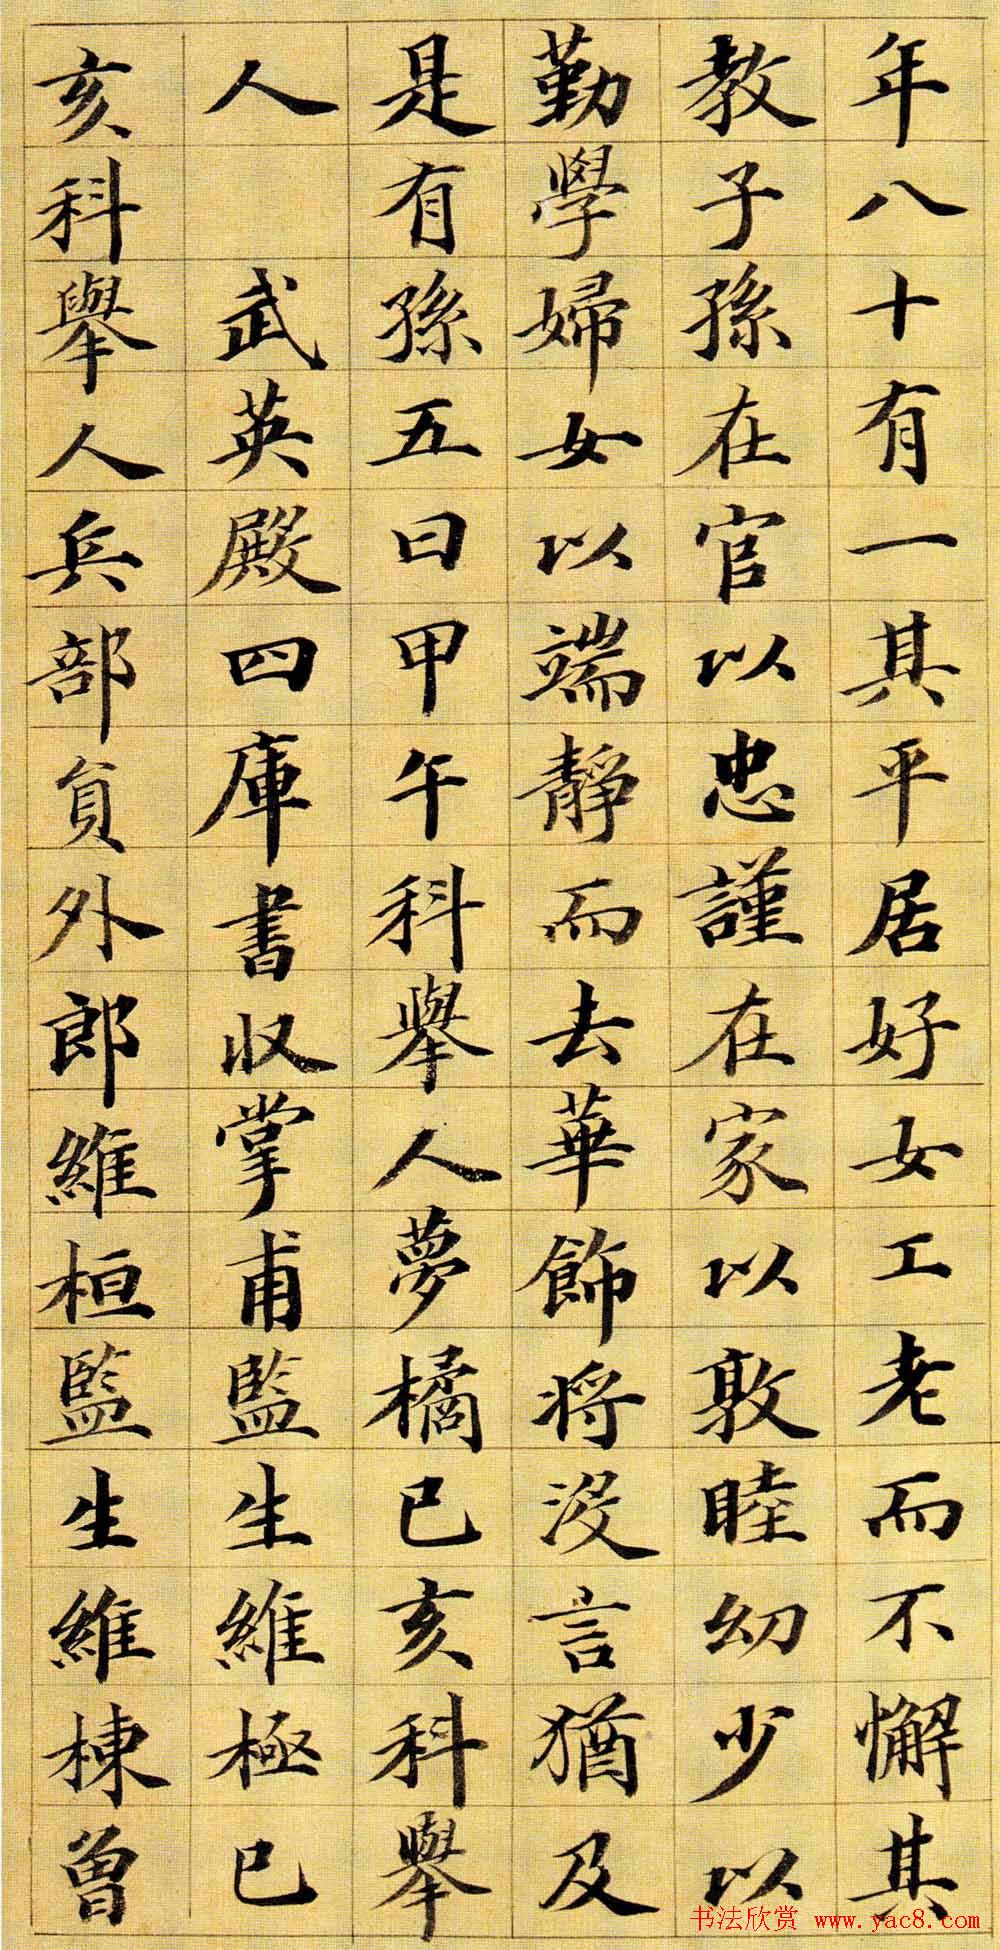 年八十有一其平居好女工老而不懈其
教子孫在官以忠謹在家以敦睦幼少以
勤學婦女以端靜而去華飾將沒言猶及
是有孫五曰甲午科舉人夢橘已亥科舉
人 武英殿四庫書收掌甫監生維極已
亥科舉人兵部員外郎維桓監生維棟曾
书法欣赏 www.yac8.com